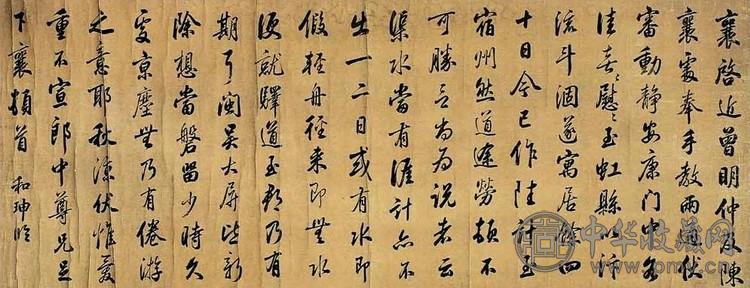 襄啓近曾明仲及陳
襄處奉手教兩通伏
審動靜安康門中各
佳喜〻慰〻至虹縣以汴
流斗涸遂寓居餘四
十日今已作陸計至
宿州然道途勞頓不
可勝言尚為說者云
渠水當有涯計亦不
出一二日或有水即
假輕舟徑來即無水
便就驛道至都乃有
期耳閩吳大屏皆新
除想當磐留少時久
處京塵無乃有倦游
之意耶秋涼伏惟愛
重不宣郎中尊兄足
下襄頓首 和珅臨
中华收藏网